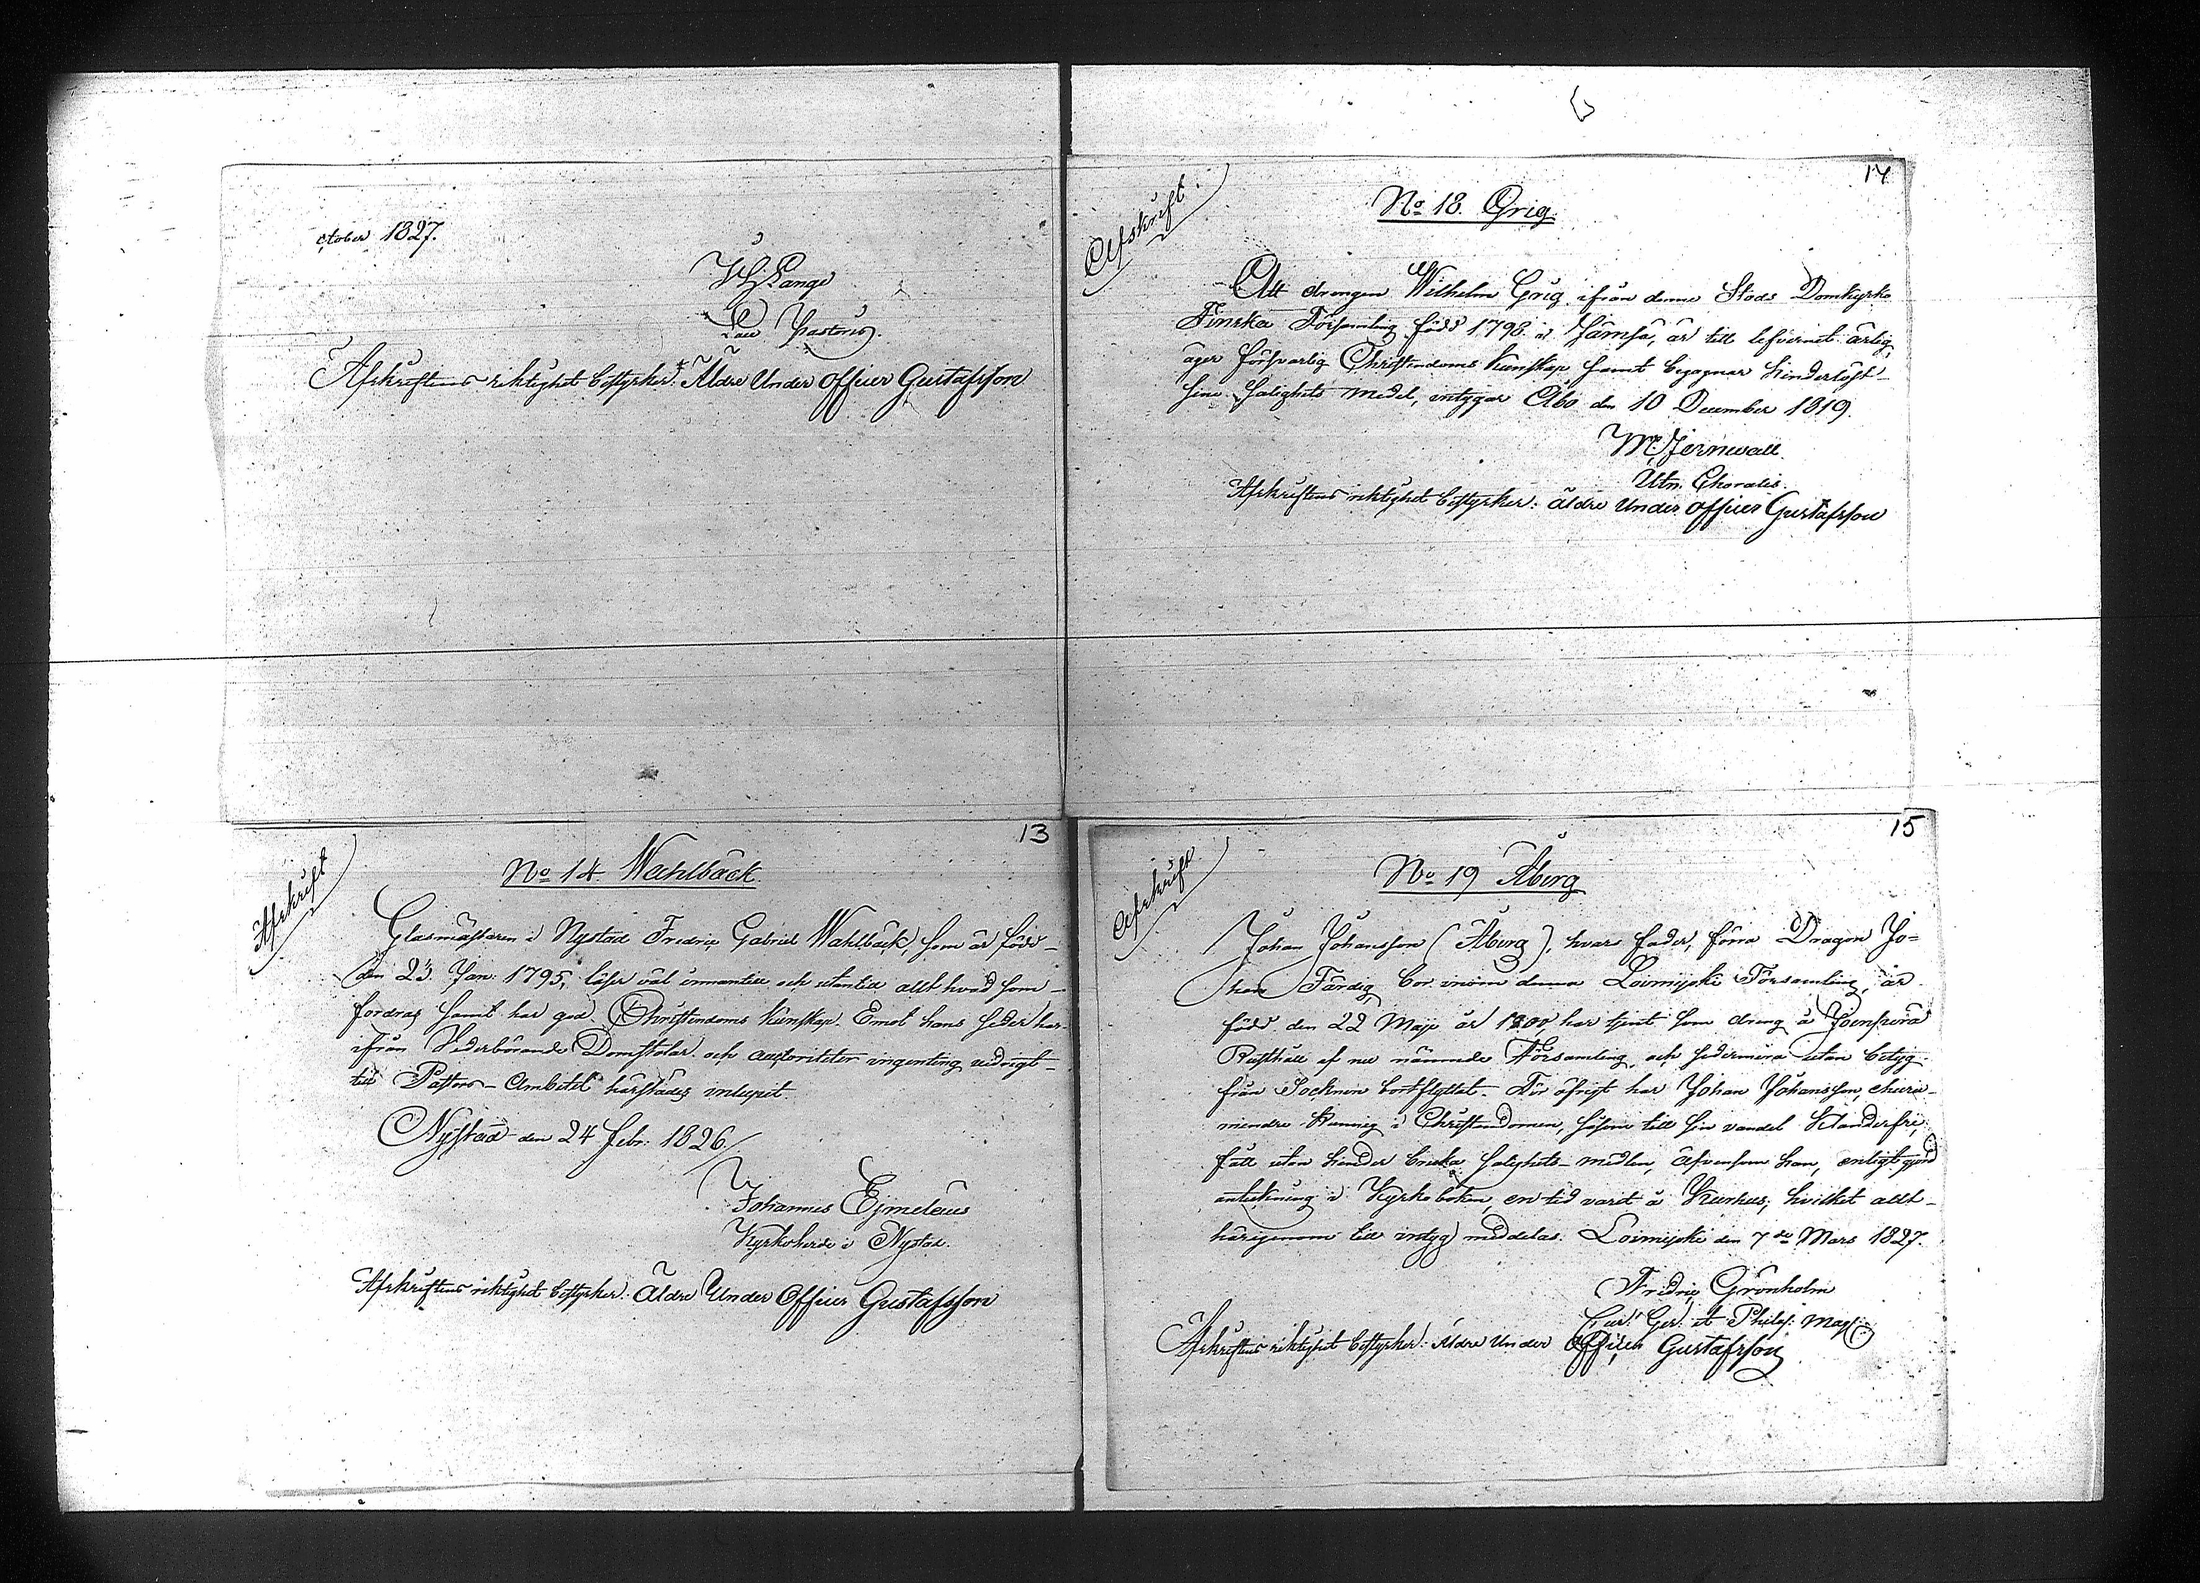 ctober 1827.
Lange
Pastoris.
Afskriftens riktighet bestyrker. Äldre Under Officer Gustafsson
14
Afskrift.
No 18. Grig.
Att drengen Wilhelm Grig ifrån denne Stads Domkyrko
Finska Församling född 1798 i Jämsä, är till lefvernet ärlig,
äger försvarlig Christendoms kunskap samt begagnar hinderlöst
sine salighets medel, intygar Åbo den 10 December 1819.
M. Jernwall.
Afskriftens riktighet bestyrker: äldre Under officer Gustafsson
13
Afskrift
No 14 Wahlbäck.
Glasmästaren i Nystad Fredric Gabriel Wahlbäck, som är född
den 23 Jan: 1795, läser väl innantill och utantill allt hvad som
fordras samt har god Christendoms kunskap. Emot hans heder har
ifrån Vederbörande Domstolar och auctoriteter ingenting vidrigt
till Pastors-Embetet härstädes inlupit.
Nystad den 24 Febr: 1826
Johannes Ejmeleus
Kyrkoherde i Nystad.
Afskriftens riktighet bestyrker: Äldre Under Officer Gustafsson
15
Afskrift
No 19 Åberg
Johan Johansson (Åberg), hvars fader, förra Dragon Jo=
han Färdig bor inom denna Loimijoki Församling, är
född den 22 Maji år 1800, har tjent som dreng å
Rusthåll af nu nämnde Församling, och sedermera utan betyg
från Socknen bortflyttat. För öfrigt har Johan Johansson, ehuru
mindre kunnig i Christendomen, hösine till sin vandel klanderfri,
fått utan hinder bruka salighets-medlen, äfvensom han, enligt gjord
anteckning i Kyrkoboken, en tid varit å Kurkus, hvilket allt
härigenom till intyg meddelas. Loimijoki den 7de Mars 1827.
Fredric Grönholm
et Philos: Mag:
Afskriftens riktighet bestyrker: Äldre Under Officer Gustafsson